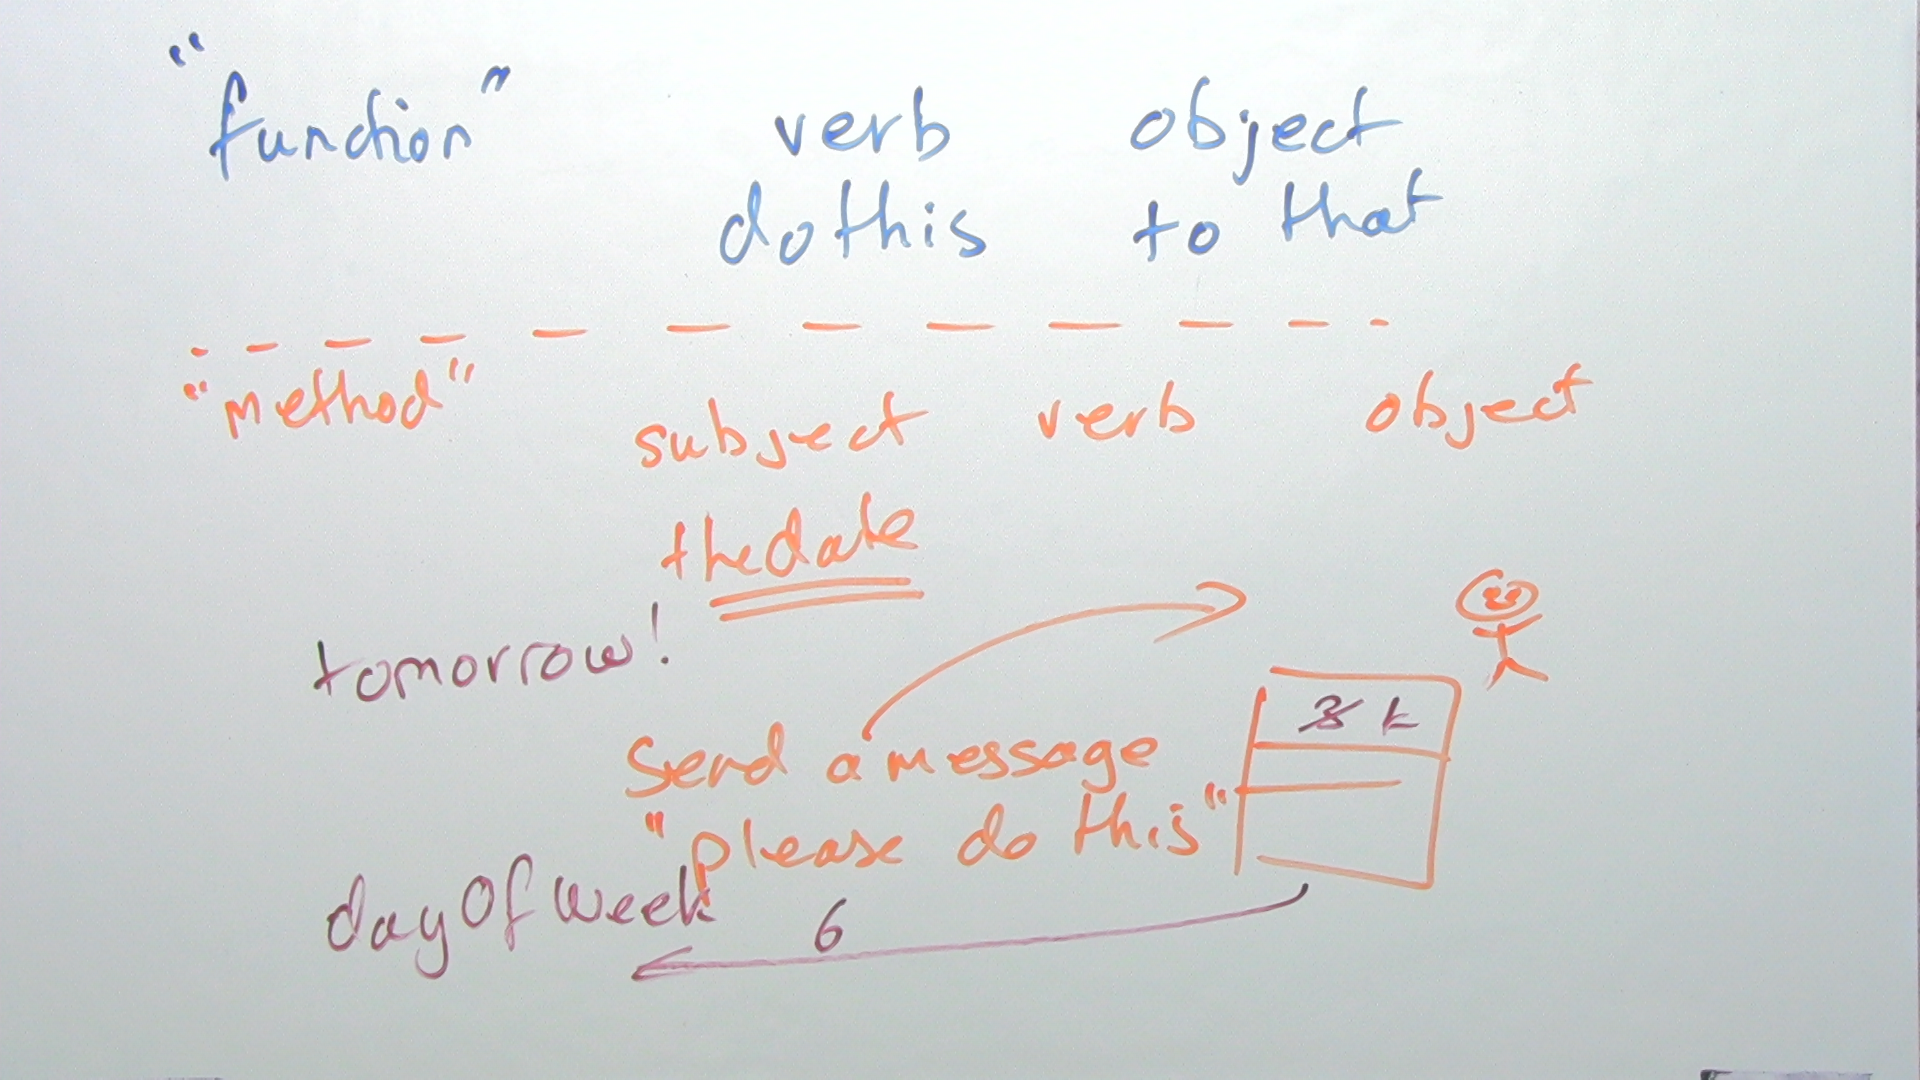 "function" verb object
do this to that
"method" subject verb object
the date
tomorrow!
Send a message
"please do this"
dayOfWeek 6